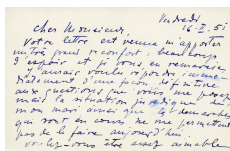 Vendredi
16-2-51
Cher Monsieur,
Votre lettre est venue m'apporter
un très grand réconfort, beaucoup
d'espoir et je vous en remercie.
J'aurais voulu répondre immé-
diatement d'une façon définitive
aux questions que vous me posez
mais la situation juridique de
mon mari ainsi que les démarches
qui sont en cours ne me permettent
pas de le faire aujourd'hui.
Voulez-vous être assez aimable